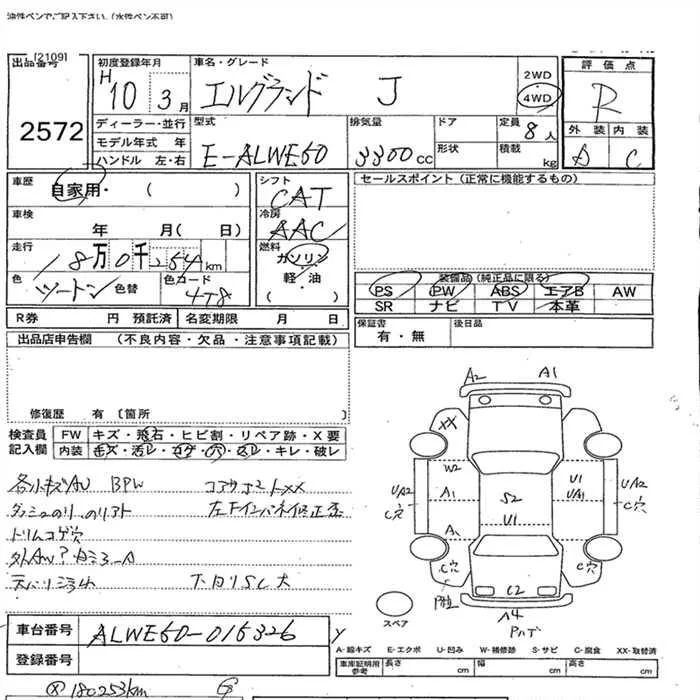 油性ペンでご記入下さい。(水性ペン不可)
出品番号 [2109]
2572
初度登録年月
H 10 3月
車名・グレード
エルグランド J
2WD
4WD
評価点
R
外装 内装
A C
ディーラー・並行
モデル年式 年
ハンドル 左・右
型式
E-ALWE50
排気量
3300cc
ドア
形状
定員 8人
積載 kg
車歴
自家用・( )
車検
年 月( 日)
走行
18万0千254km
色 ツートン 色替
色カード 4T8
シフト
CAT
冷房
AAC
燃料
ガソリン
軽・油
( )
セールスポイント (正常に機能するもの)
装備品(純正品に限る)
PS PW ABS エアB AW
SR ナビ TV 本革
R券 円 預託済 名変期限 月 日
保証書
有・無
後日品
出品店申告欄 (不良内容・欠品・注意事項記載)
修復歴 有〔箇所 〕
検査員記入欄
FW キズ・飛石・ヒビ割・リペア跡・X要
内装 キズ・汚レ・コゲ・穴・スレ・キレ・破レ
各小キズAU BPW
コアサポートXX
トリムコゲ穴
A2 A1
XX
W2
A1
A1
S2
U1
U1
UA1
UA2
C穴
UA2
C穴
C穴
C穴
C2
A4
スペア
車台番号 ALWE50-015326
登録番号
A-線キズ E-エクボ U-凹み W-補修跡 S-サビ C-腐食 XX-取替済
車庫証明用参考 長さ cm 幅 cm 高さ cm
180253km